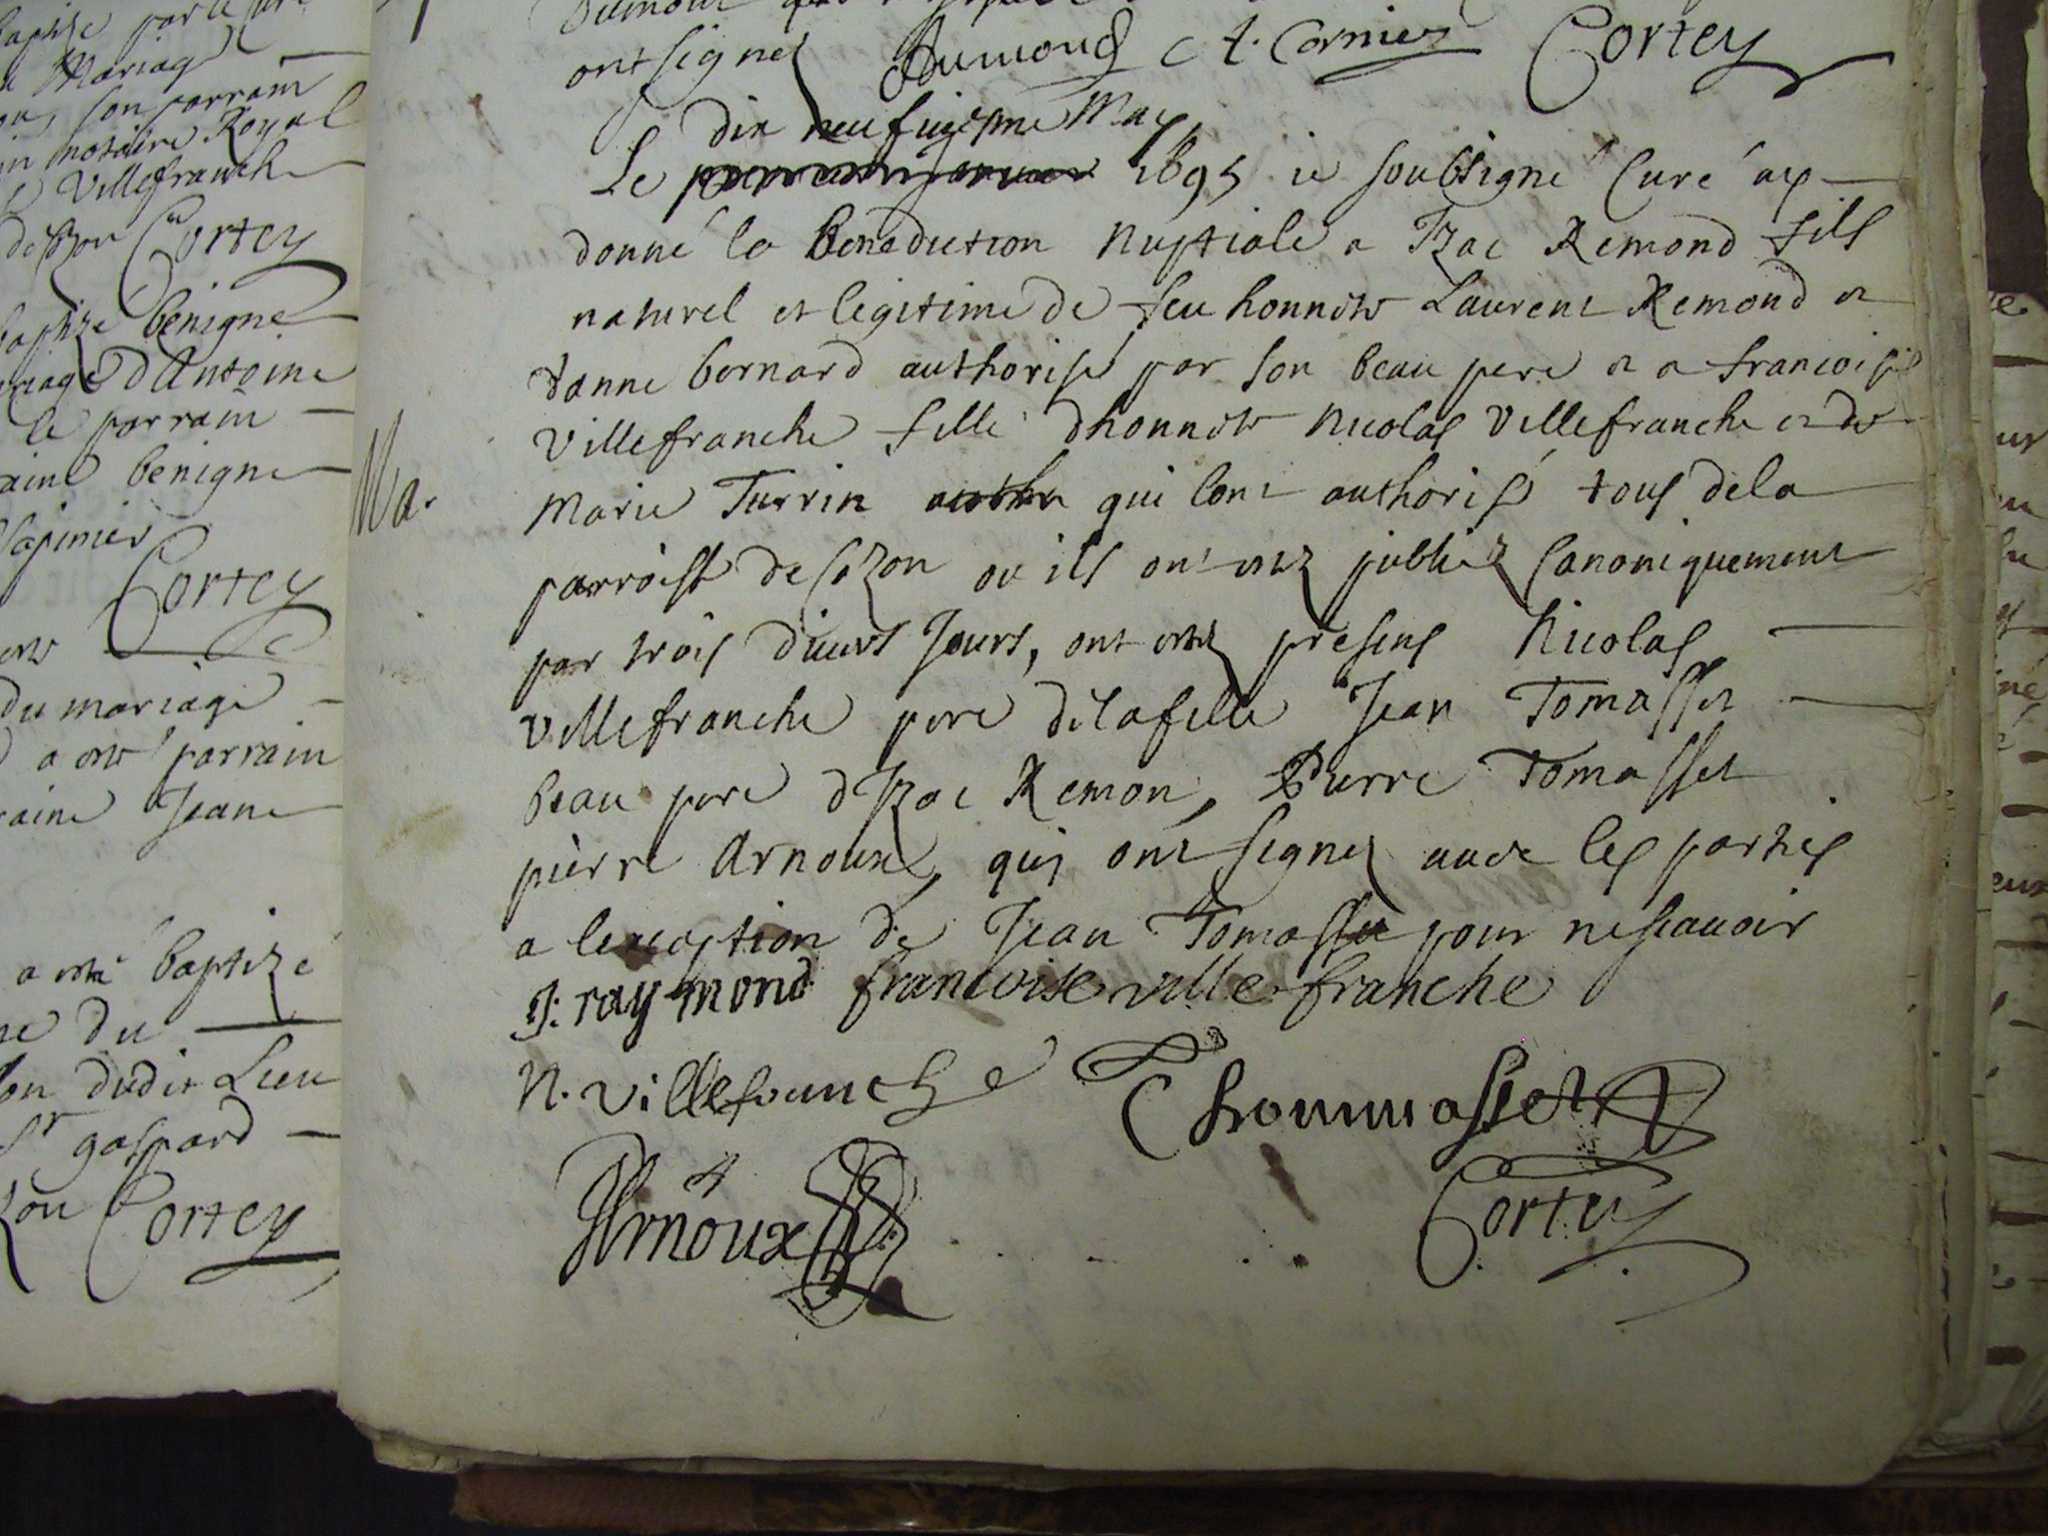 baptize par le curé
Mariage
son parrain
notaire Royal
Villefranche
de Cozon Cortey
baptize benigne
mariage d'Antoine
le parrain
benigne
Cortey
du mariage
a este parrain
Jeane
a esté baptizé
du
dudit Lieu
Sr gaspard
Cortey
ont signez Dumond A. Cornier Cortey
dix neufuiesme May
Le 1695 ie soubsigné Curé ay
donné la benediction nuptiale a Izac Remond fils
naturel et legitime de feu honneste Laurent Remond et
danne bernard authorisé par son beau pere et a francoise
Villefranche fille dhonneste Nicolas Villefranche et de
Ma. Marie Turrin qui lont authorisé tous de la
parroisse de Cozon ou ils ont estez publiez Canoniquement
par trois diuers Jours, ont estez presens Nicolas
Villefranche pere de la fille Jean Tomasset
beau pere dIzac Remon, Pierre Tomasset
pierre Arnoux, qui ont signez auec les parties
a lexception de Jean Tomasset pour ne scauoir
J: raymond francoise ville franche
N. Villefranche Thommasset
Arnoux Cortey